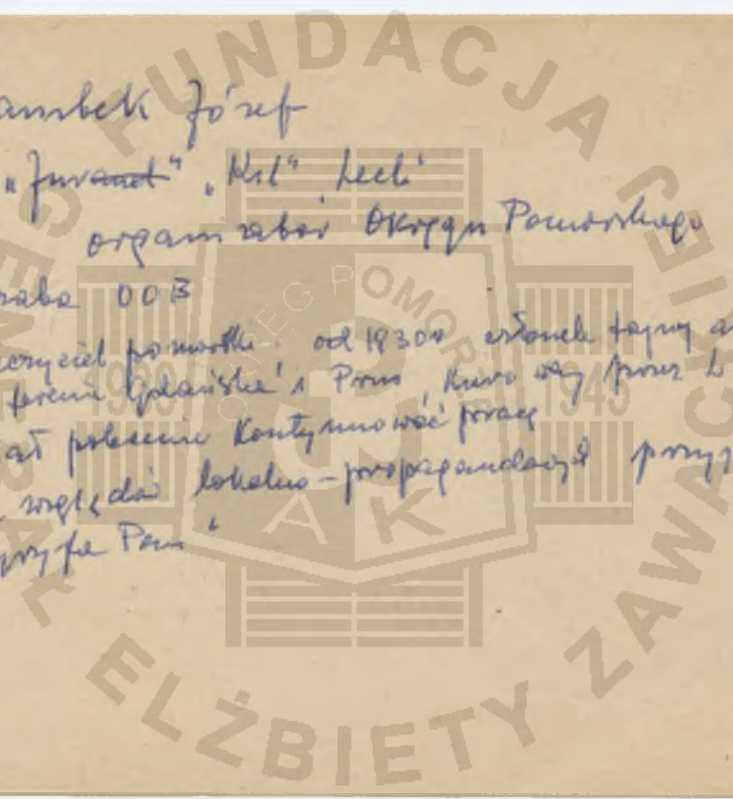 ambek Józef
"Jurand" "Kil" Lech"
organizator Okręgu Pomorskiego
raba OOB
czyciel pomorski. od 1930r członek tajny
terenu Gdańska i Prus przez
ał polecenie kontynuować pracę
względów lokalno-propagandowych
Gryfa Pom"
FUNDACJA
ELŻBIETY ZAWACKIEJ
OKRĘG POMORZE
1939 1945
AK